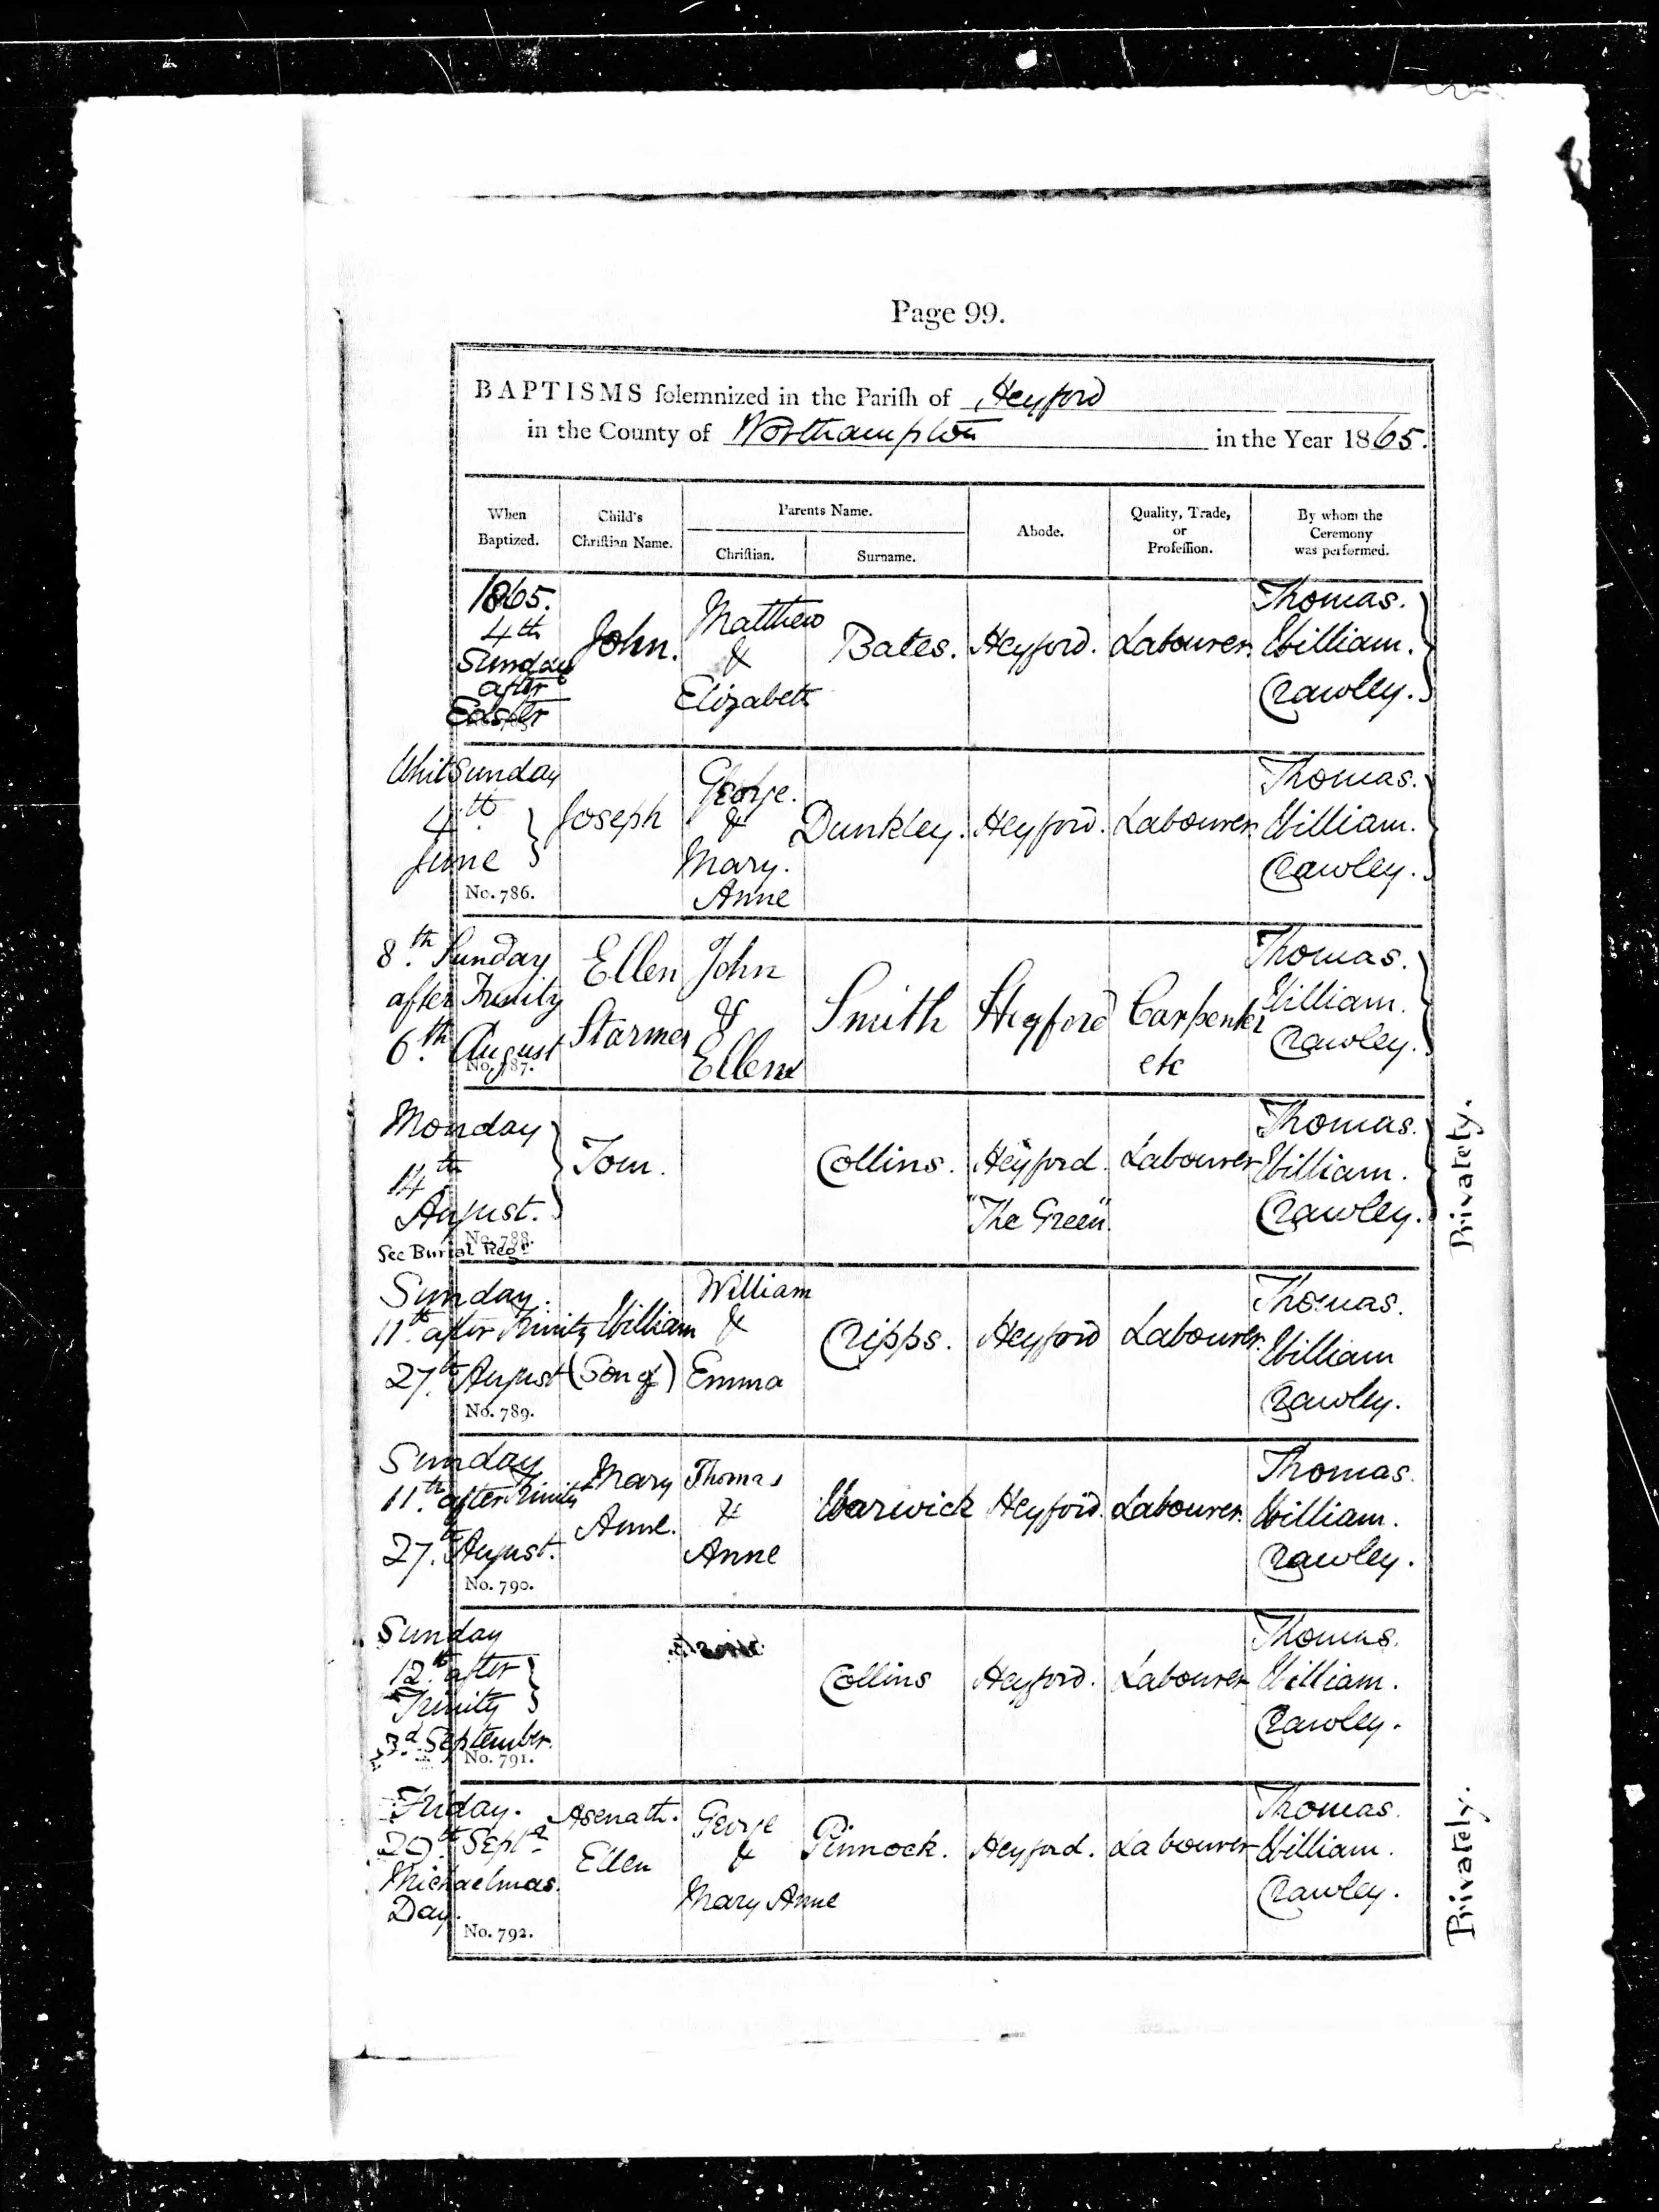 Page 99.
BAPTISMS solemnized in the Parish of Heyford
in the County of Northampton in the Year 1865.
When Baptized. Child's Christian Name. Parents Name. Christian. Surname. Abode. Quality, Trade, or Profession. By whom the Ceremony was performed.
1865.
4th
Sunday
after
Easter
John.
Matthew
&
Elizabeth
Bates.
Heyford.
Labourer.
Thomas.
William.
Crawley.
Whitsunday
4th
June
No. 786.
Joseph
George.
&
Mary.
Anne
Dunkley.
Heyford.
Labourer
Thomas.
William.
Crawley.
8th. Sunday
after Trinity
6th. August
No. 787.
Ellen
Starmer
John
&
Ellen
Smith
Heyford
Carpenter
etc
Thomas.
William.
Crawley.
Monday
14th
August.
No. 788.
See Burial Regr
Tom.
Collins.
Heyford.
"The Green"
Labourer
Thomas.
William.
Crawley.
Privately.
Sunday.
11th. after Trinity
27th. August
No. 789.
William
(Son of)
William
&
Emma
Cripps.
Heyford
Labourer.
Thomas.
William
Crawley.
Sunday
11th. after Trinity
27th. August.
No. 790.
Mary
Anne.
Thomas
&
Anne
Warwick
Heyford.
Labourer.
Thomas.
William.
Crawley.
Sunday
12th after
Trinity
3d. September.
No. 791.
Collins
Heyford.
Labourer
Thomas.
William.
Crawley.
Friday.
29th. Septr
Michaelmas.
Day.
No. 792.
Asenath.
Ellen
George
&
Mary Anne
Pinnock.
Heyford.
Labourer
Thomas.
William.
Crawley.
Privately.